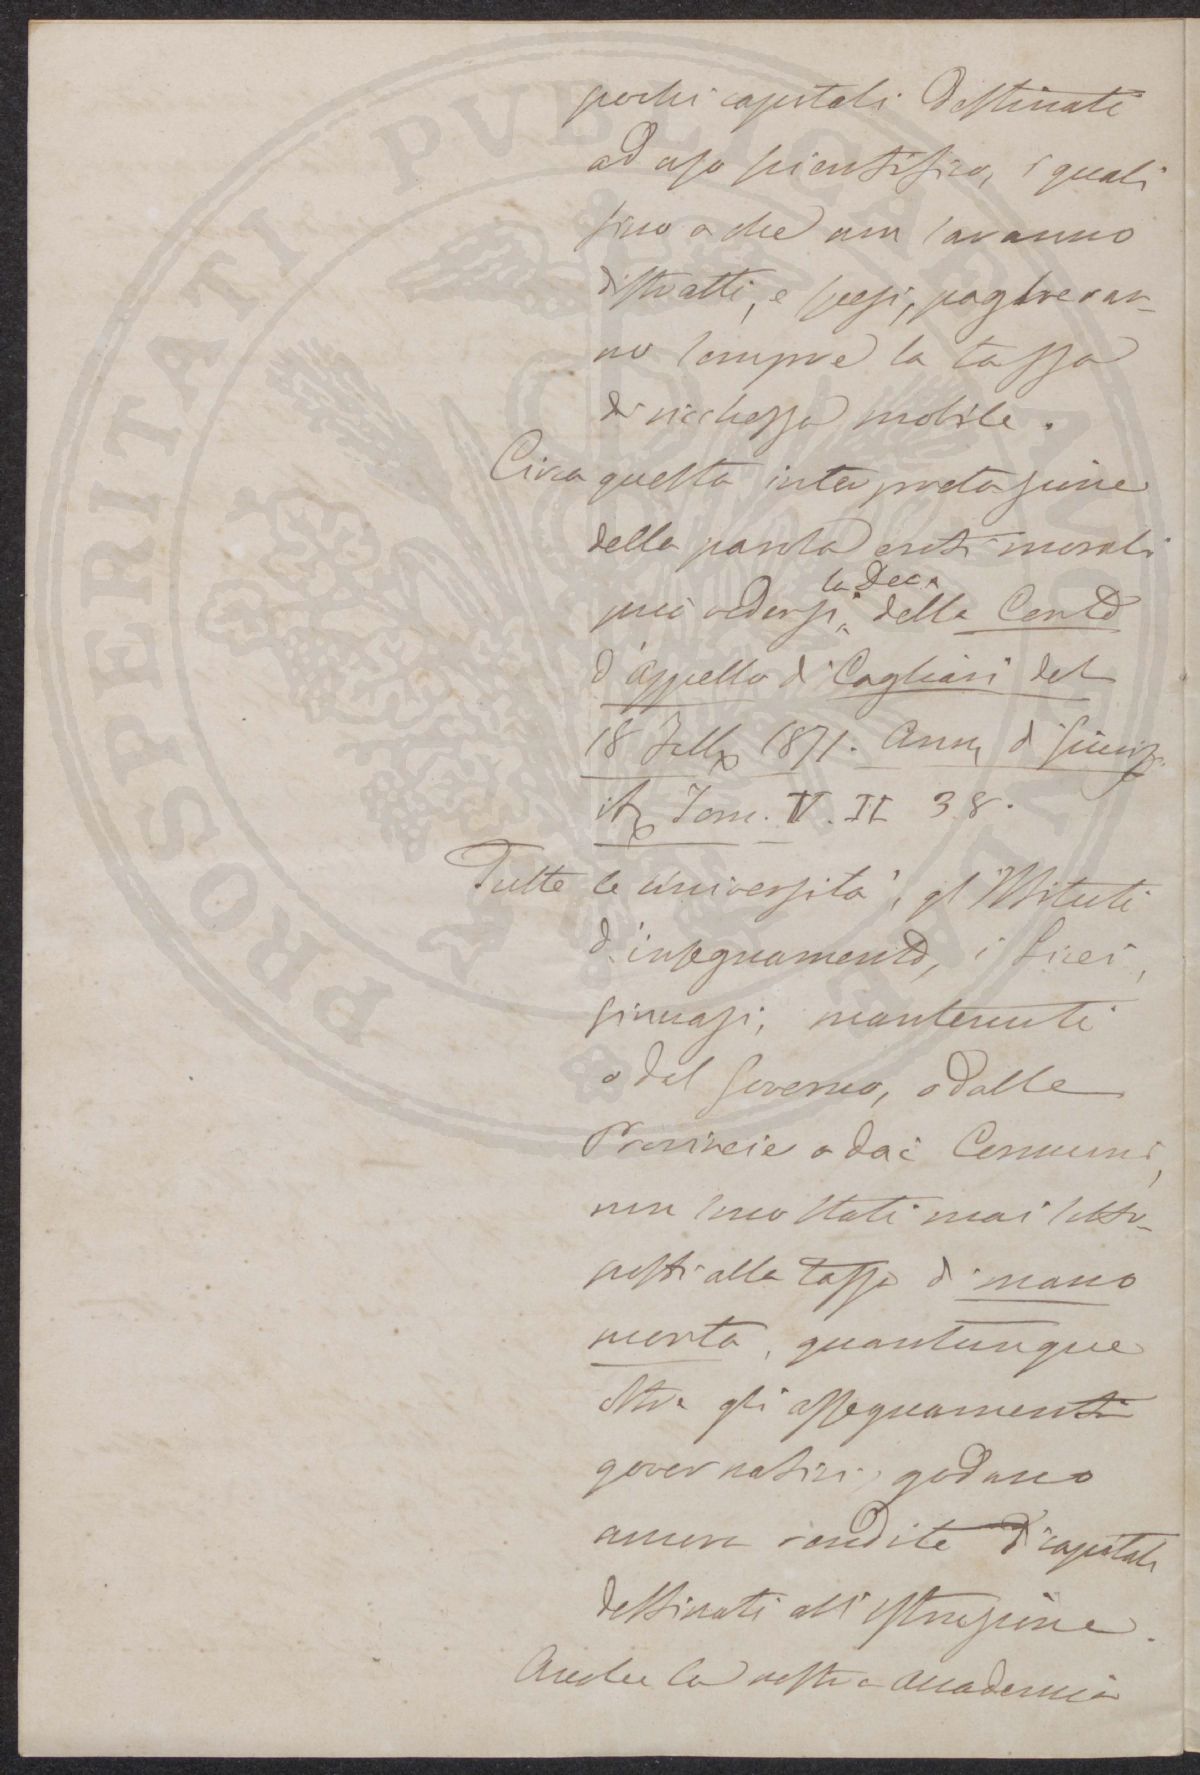 pochi capitali destinati
ad uso scientifico, i quali
fino a che non saranno
distratti, e spesi, pagheran-
no sempre la tassa
di ricchezza mobile.
Circa questa interpretazione
della parola enti morali
può vedersi la Dec. della Corte
d'appello di Cagliari del
18 1871. Ann. di Giurisp.
It. Tom. V. II 38.
Tutte le Università, gl'Istituti
d'insegnamento, i Licei,
ginnasi, mantenuti
o dal Governo, o dalle
Provincie o dai Comuni,
non sono stati mai sotto-
posti alla tassa di mano
morta, quantunque
oltre gli assegnamenti
governativi, godano
ancora rendite di capitali
destinati all'istruzione.
Anche la nostra Accademia
PROSPERITATI PUBLICAE AUGENDAE